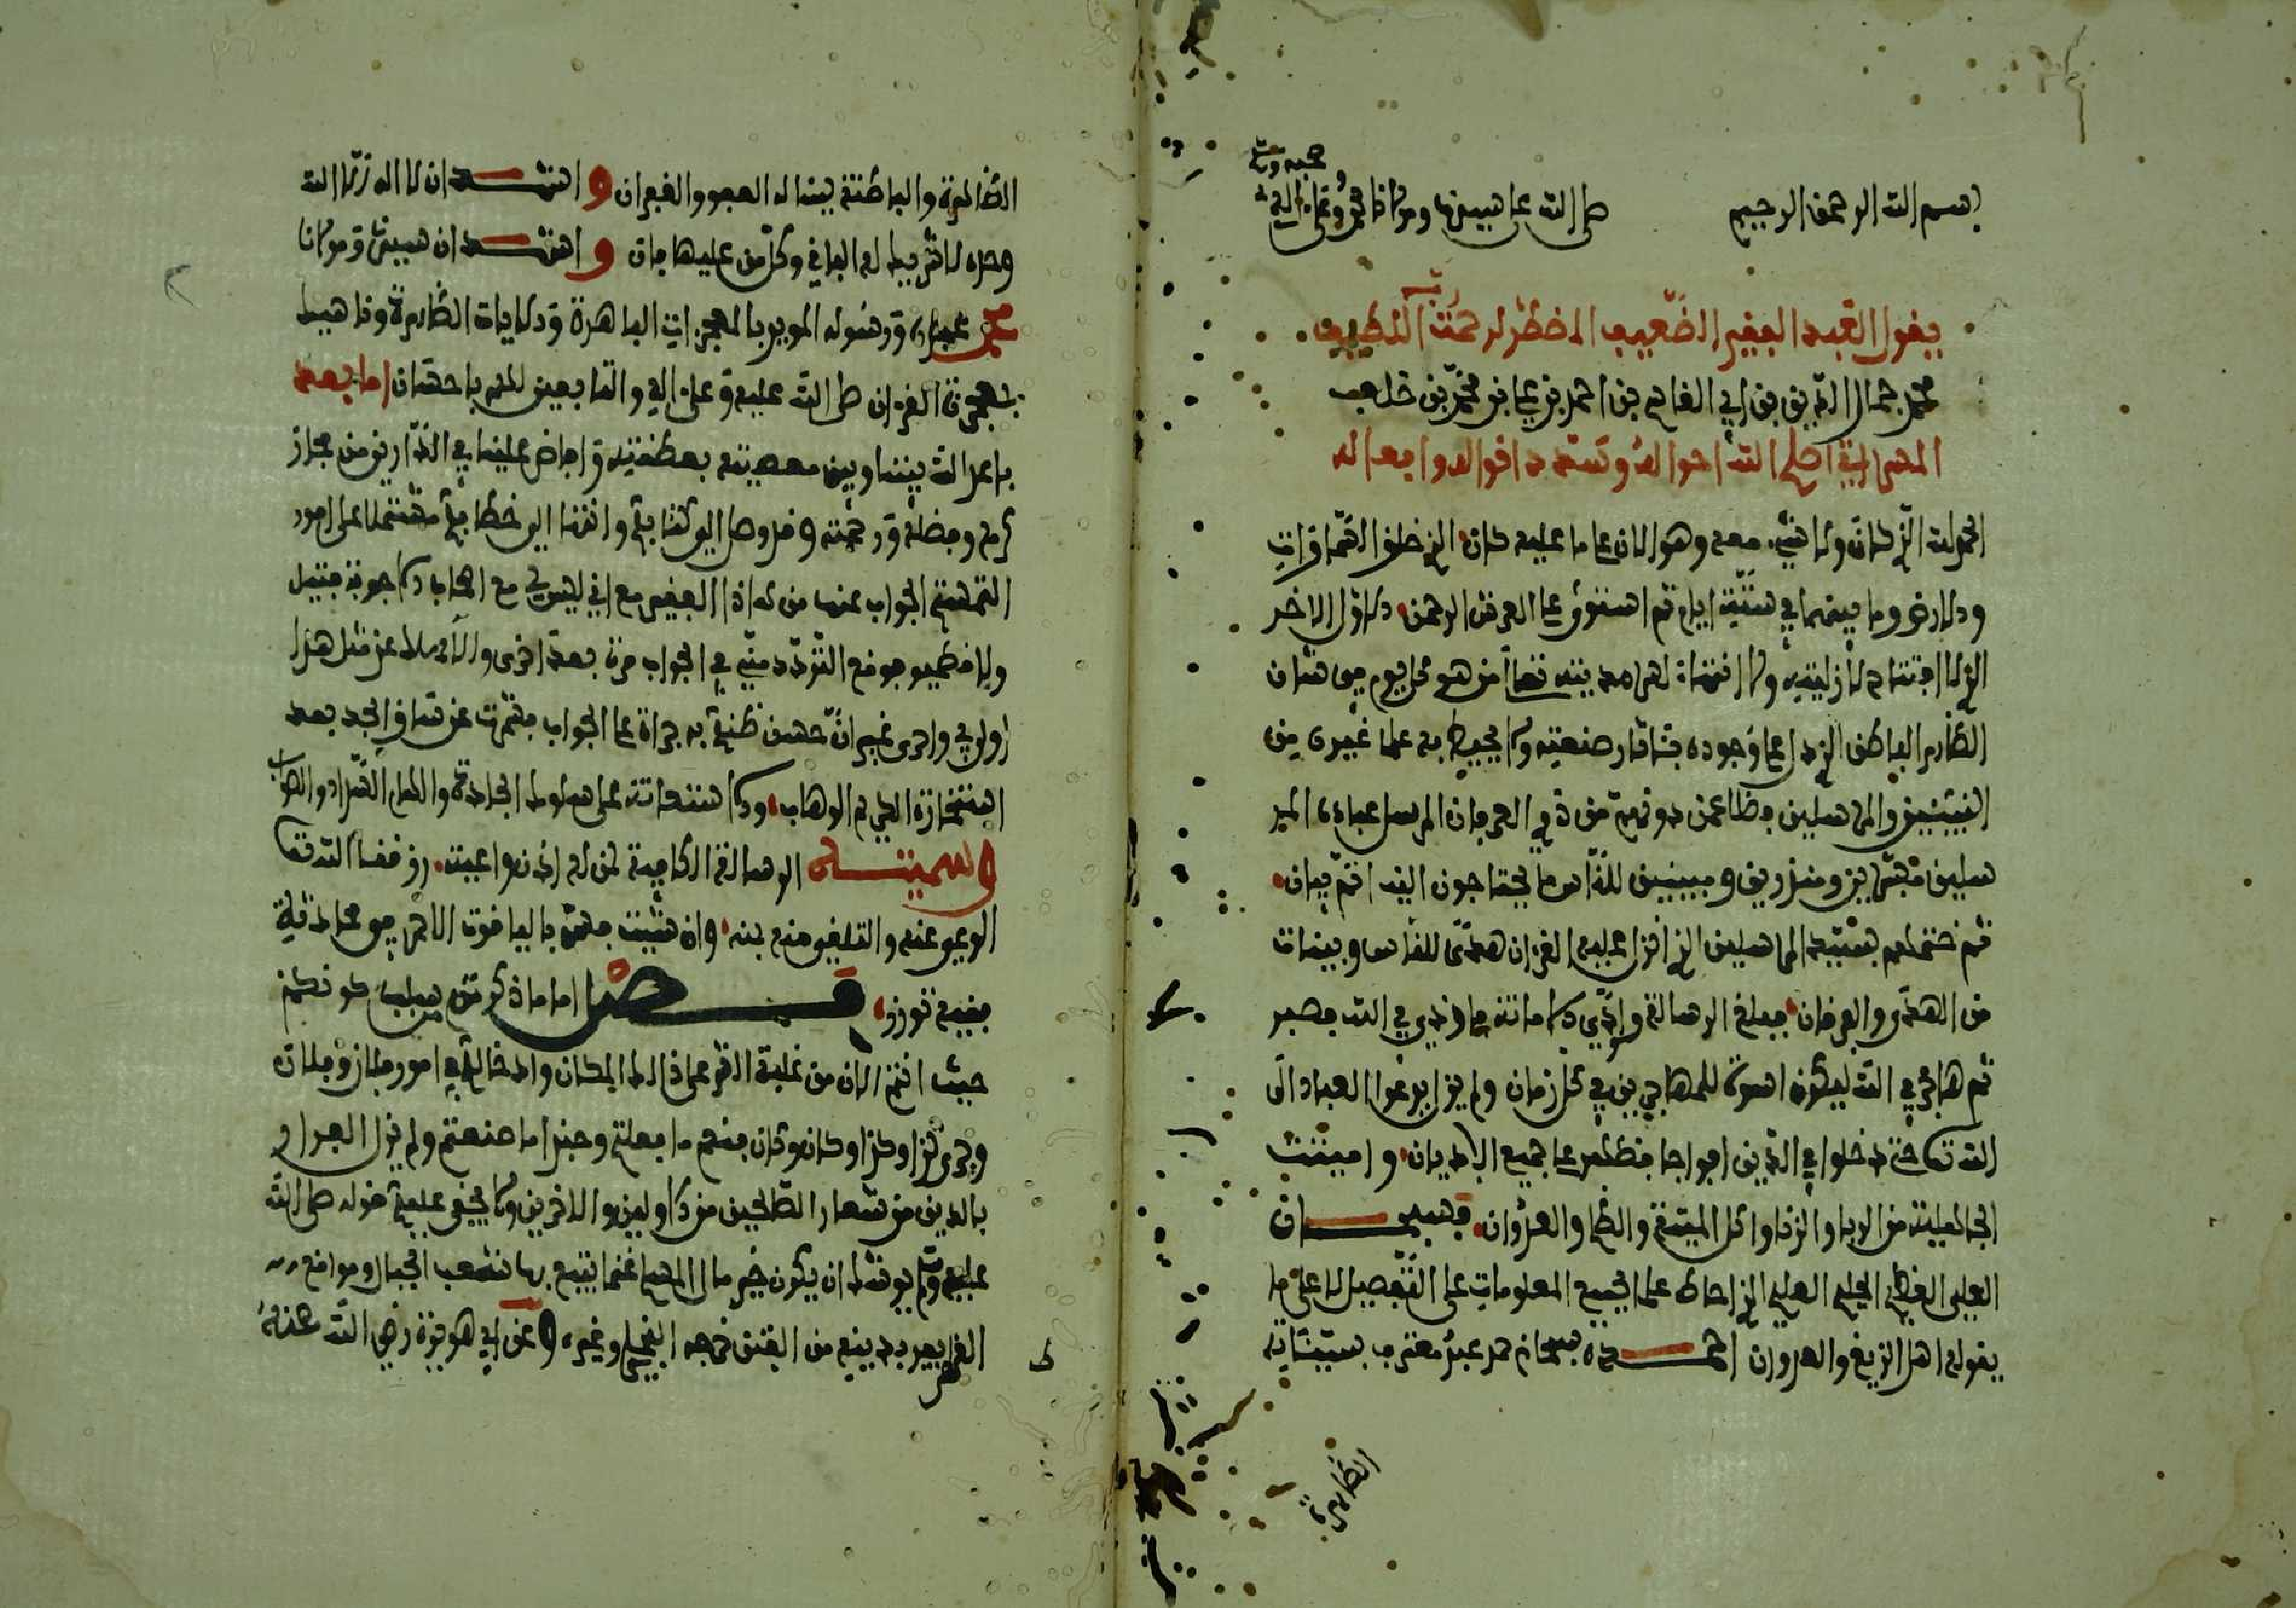 بسم الله الرحمن الرحيم صلى الله على سيدنا ومولانا محمد وعلى اله
وصحبه وسلم
يقول العبد الفقير الضعيف المضطر لرحمة ربه اللطيف
محمد جمال الدين بن ابي القاسم بن احمد بن علي بن محمد بن خلف
المسراتي اصلح الله احواله وسدد اقواله وافعاله
الحمد لله الذي كان ولا شيء معه وهو الان على ما عليه كان الذي خلق السماوات
والارض وما بينهما في ستة ايام ثم استوى على العرش الرحمن الاول الاخر
الذي لا افتتاح لازليته ولا انتهاء لسرمديته تعالى من هو كل يوم هو في شان
الظاهر الباطن الذي دل على وجوده بـاثار صنعته ولا يحيط به علما غيره من
النبيئين والمرسلين فضلا عمن دونهم من ذوي العرفان المرسل عباده المر
سلين مبشرين ومنذرين ومبينين للناس ما يحتاجون اليه اتم بيان
ثم ختمهم بسيد المرسلين الذي انزل عليه القران هدى للناس وبينات
من الهدى والفرقان فبلغ الرسالة وادى الامانة واوذي في الله فصبر
ثم هاجر في الله ليكون اسوة للمهاجرين في كل زمان ولم يزل يدعوا العباد الى
الله تعالى حتى دخلوا في الدين افواجا فظهر على جميع الاديان واميتت
الجاهلية من الربا والزنا واكل الميتة والظلم والعدوان فسبحان
العلي العظيم الحليم العليم الذي احاط علما بجميع المعلومات على التفصيل لا على ما
يقوله اهل الزيغ والعدوان احمده سبحانه حمد عبد معترف بسيئاته
الظاهرة
الظاهرة والباطنة يسئله العفو والغفران واشهد ان لا اله الا الله
وحده لا شريك له الباقي وكل من عليها فان واشهد ان سيدنا ومولانا
محمدا عبده ورسوله المويد بالمعجزات الباهرة والايات الظاهرة وناهيك
بمعجزة القران صلى الله عليه وعلى اله والتابعين لهم باحسان اما بعد
باعد الله بيننا وبين معصيته بعظمته وافاض علينا في الدارين من مجاز
كرمه وفضله ورحمته فقد وصل الي كتابك وانتهى الي خطابك مشتملا على امور
التمست الجواب عنها من هذا الفقير مع اني ليس لي مع اصحاب الاجوبة فتيل
ولا قطمير فوقع التردد مني في الجواب مرة بعد اخرى والامساك عن مثل هذا
اولى بي واحرى غير ان حسن ظنك به جراه على الجواب فشمرت عن ساق الجد بعد
استخارة الكريم الوهاب والاستعانة على سلوك الجادة والهام السداد والصواب
وسميته الرسالة الكافية لمن له اذن واعية رزقنا الله تعالى
الوعي عنه والتلقي منه بمنه وان شئت فسمه بالياقوت الاحمر في محاذقة
فقيه توزر فصل اما ما ذكرتم سبب كونكم
حيث انتم الان من غلبة القرعلى ذلك المكان وادخاله في امور فلان وفلان
وجرى كذا وكذا وكان وكان فنعم ما فعلتم وحبذا ما صنعتم ولم يزل الفرار
بالدين من شعار الصالحين من الاولين والاخرين ولا يخفى عليك قوله صلى الله
عليه وسلم يوشك ان يكون خير مال المسلم غنما يتبع بها شعب الجبال ومواقع
القطر يفر بدينه من الفتن خرجه البخاري وغيره وعن ابي هريرة رضي الله عنه